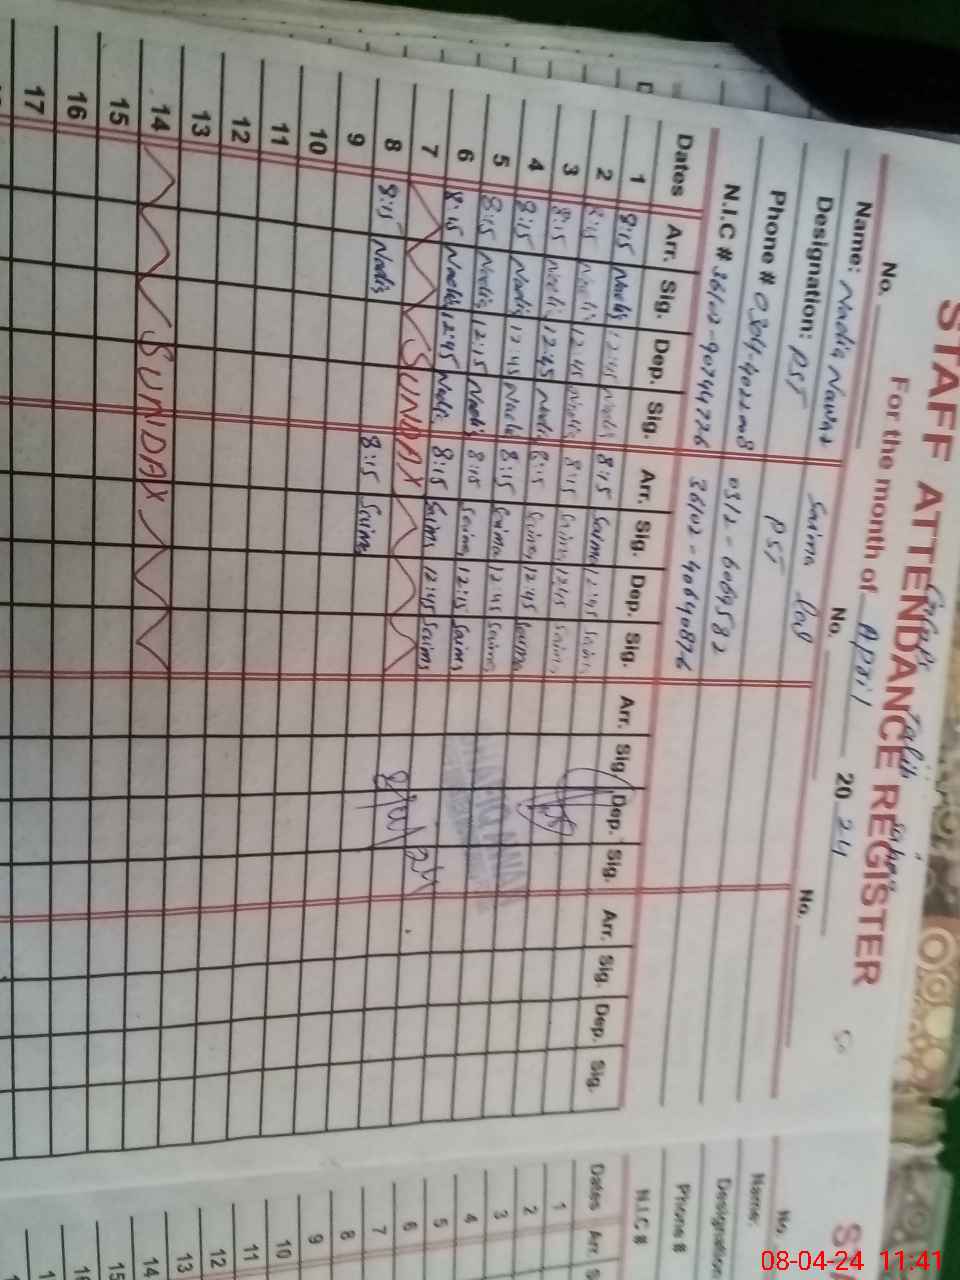 STAFF ATTENDANCE REGISTER
For the month of April 2024
No. No. No.
Name: Nadia Nawaz Saima
Designation: PST PST
Phone # 0304-4022008 0312-6069582
N.I.C # 36102-90744726 36102-40640876
Dates Arr. Sig. Dep. Sig. Arr. Sig. Dep. Sig. Arr. Sig. Dep. Sig. Arr. Sig. Dep. Sig.
1 8:15 Nadia 12:45 Nadia 8:15 Saima 12:45 Saima
2 8:15 Nadia 12:45 Nadia 8:15 Saima 12:45 Saima
3 8:15 Nadia 12:45 Nadia 8:15 Saima 12:45 Saima
4 8:15 Nadia 12:45 Nadia 8:15 Saima 12:45 Saima
5 8:15 Nadia 12:15 Nadia 8:15 Saima 12:15 Saima
6 8:15 Nadia 12:45 Nadia 8:15 Saima 12:45 Saima
7 SUNDAY
8 8:15 Nadia 8:15 Saima
9
10
11
12
13
14 SUNDAY
15
16
17
No.
Name:
Designation
Phone #
N.I.C #
Dates Arr.
1
2
3
4
5
6
7
8
9
10
11
12
13
14
15
08-04-24 11:41